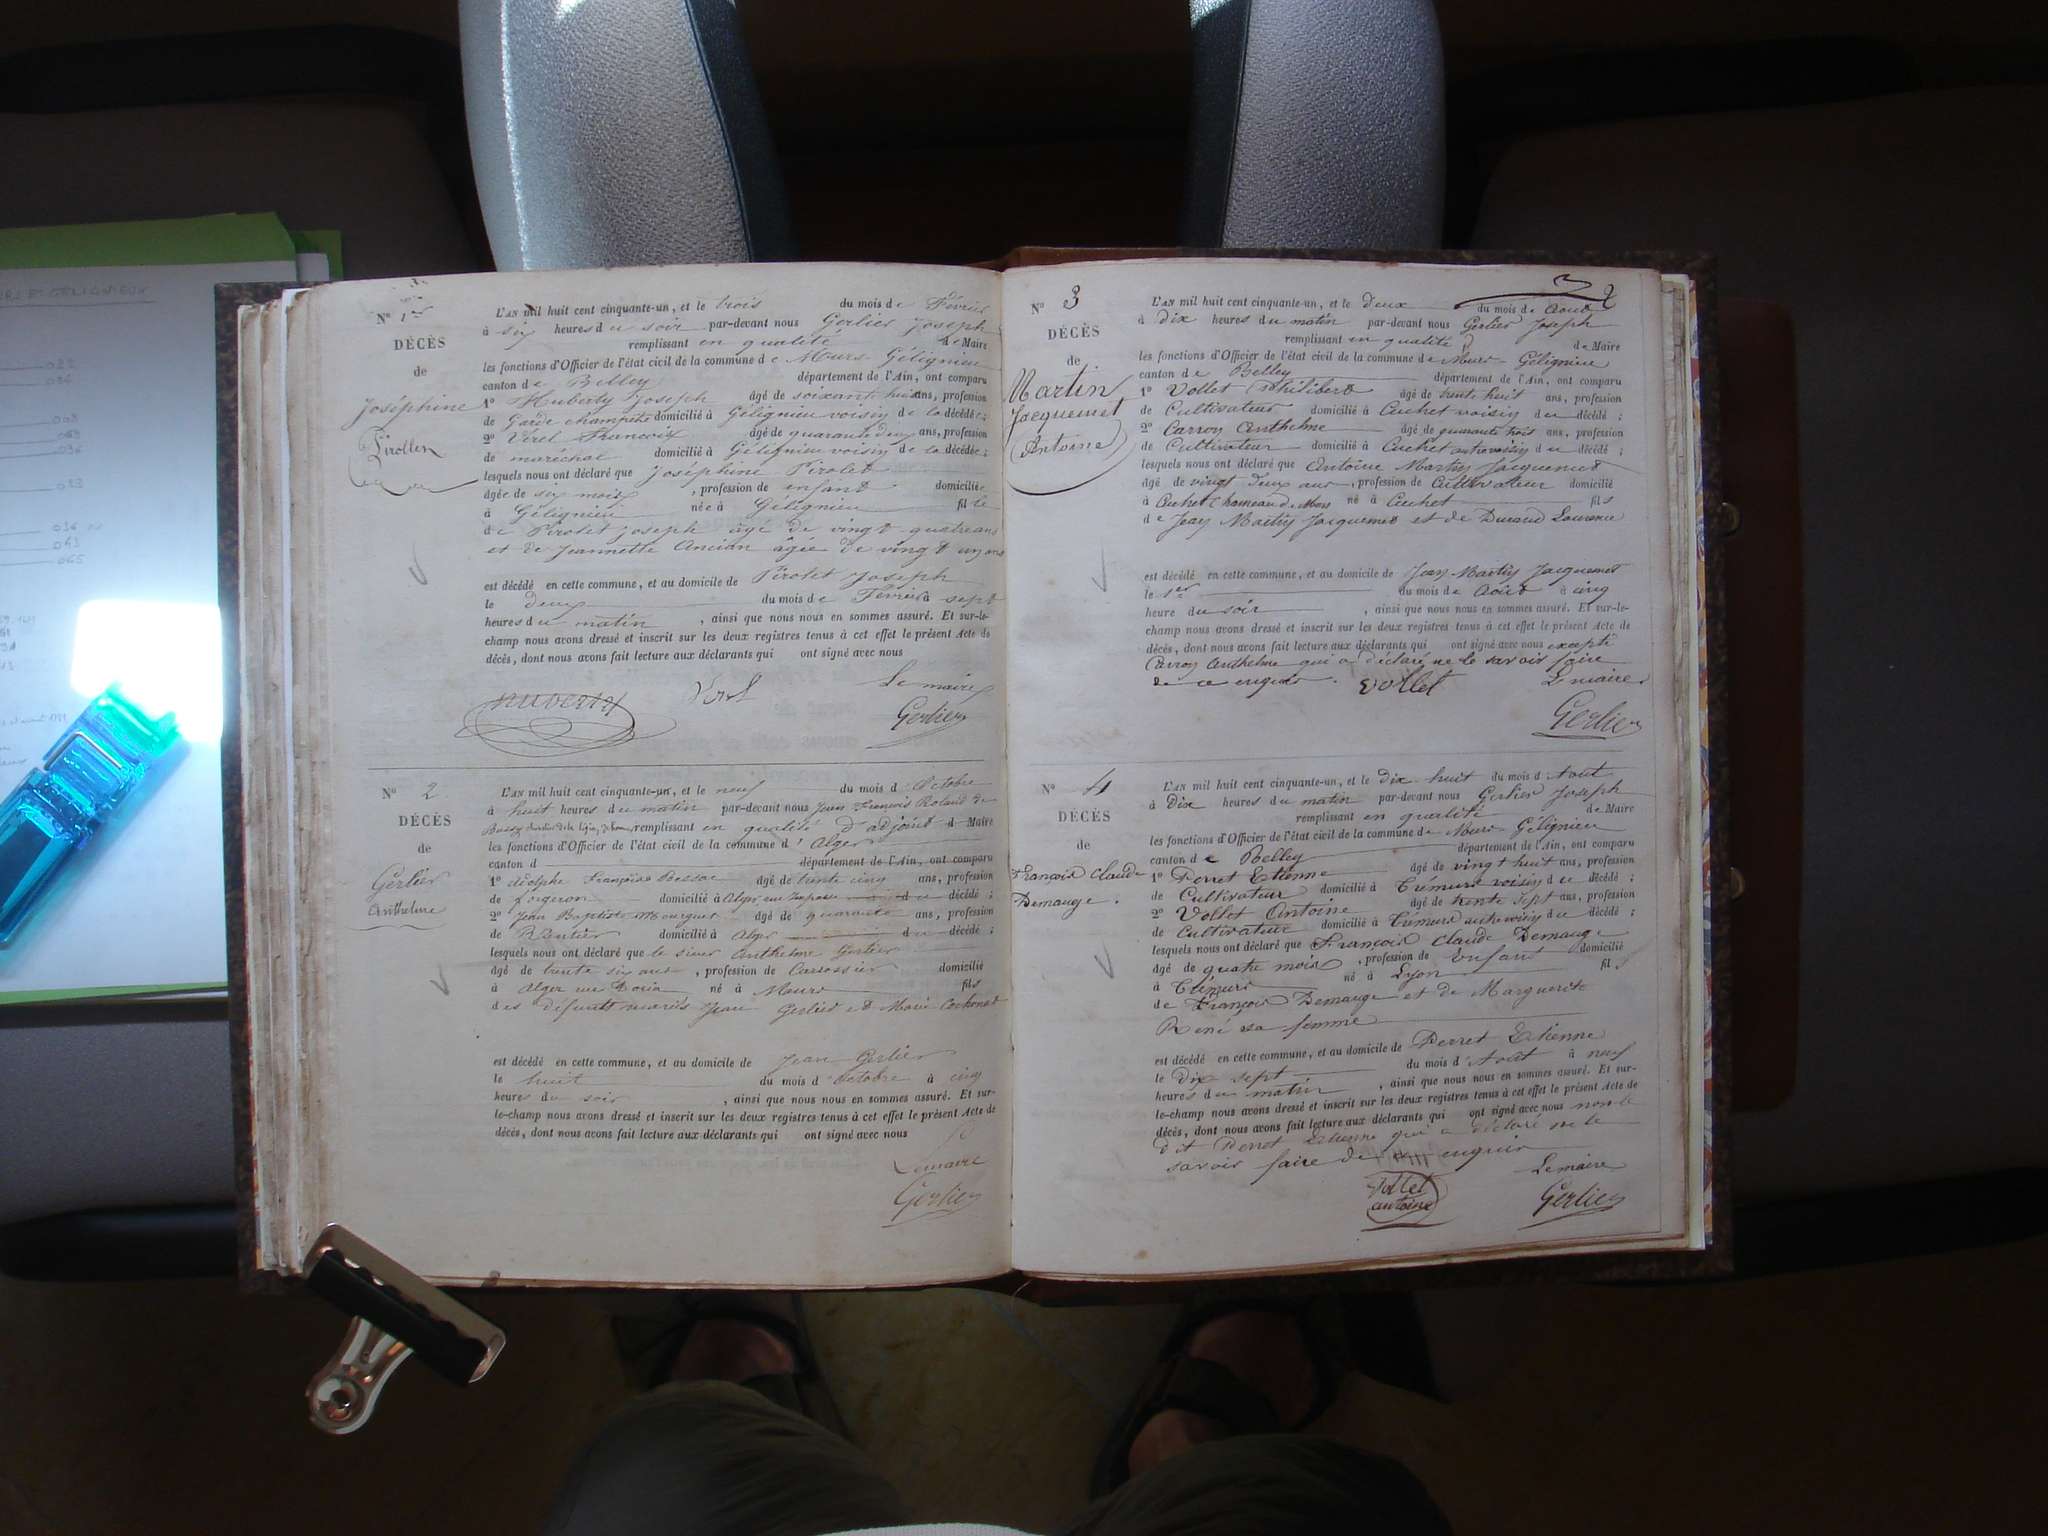 N° 1er
DÉCÈS
de
Joséphine
Pirollet
L'AN mil huit cent cinquante-un, et le trois du mois de Février
à six heures du soir par-devant nous Gerlier Joseph
remplissant en qualité de Maire
les fonctions d'Officier de l'état civil de la commune de Murs-Gélignieu
canton de Belley département de l'Ain, ont comparu
1° Huberty Joseph âgé de soixante huit ans, profession
de Garde champêtre domicilié à Gélignieu voisin de la décédée;
2° Vérel François âgé de quarante deux ans, profession
de maréchal domicilié à Gélignieu voisin de la décédée;
lesquels nous ont déclaré que Joséphine Pirolet
âgée de six mois, profession de enfant domiciliée
à Gélignieu née à Gélignieu fille
de Pirolet Joseph âgé de vingt-quatre ans
et de Jeannette Ancian âgée de vingt un ans
est décédé en cette commune, et au domicile de Pirolet Joseph
le deux du mois de Février à sept
heures du matin, ainsi que nous nous en sommes assuré. Et sur-le-
champ nous avons dressé et inscrit sur les deux registres tenus à cet effet le présent Acte de
décès, dont nous avons fait lecture aux déclarants qui ont signé avec nous
Le maire
huberty Verel Gerlier
N° 2
DÉCÈS
de
Gerlier
Anthelme
L'AN mil huit cent cinquante-un, et le neuf du mois d'Octobre
à huit heures du matin par-devant nous Jean François Roland de
Bussy chevalier de la légion d'honneur remplissant en qualité d'adjoint de Maire
les fonctions d'Officier de l'état civil de la commune d'Alger
canton d département de l'Ain, ont comparu
1° Adolphe François Bessac âgé de trente cinq ans, profession
de forgeron domicilié à Alger rue du décédé;
2° Jean Baptiste Mourgues âgé de quarante ans, profession
de Rentier domicilié à Alger du décédé;
lesquels nous ont déclaré que le sieur Anthelme Gerlier
âgé de trente six ans, profession de Carrossier domicilié
à Alger rue Doria né à Murs fils
des défunts mariés Jean Gerlier et Marie Cochonat
est décédé en cette commune, et au domicile de Jean Gerlier
le huit du mois d'Octobre à cinq
heures du soir, ainsi que nous nous en sommes assuré. Et sur-
le-champ nous avons dressé et inscrit sur les deux registres tenus à cet effet le présent Acte de
décès, dont nous avons fait lecture aux déclarants qui ont signé avec nous
Le maire
Gerlier
N° 3
DÉCÈS
de
Martin
Jacquemet
Antoine
L'AN mil huit cent cinquante-un, et le deux du mois de Août
à dix heures du matin par-devant nous Gerlier Joseph
remplissant en qualité de Maire
les fonctions d'Officier de l'état civil de la commune de Murs-Gélignieu
canton de Belley département de l'Ain, ont comparu
1° Vollet Philibert âgé de trente huit ans, profession
de Cultivateur domicilié à Cuchet voisin du décédé;
2° Carron Anthelme âgé de quarante trois ans, profession
de Cultivateur domicilié à Cuchet autre voisin du décédé;
lesquels nous ont déclaré que Antoine Martin Jacquemet
âgé de vingt deux ans, profession de Cultivateur domicilié
à Cuchet hameau de Murs né à Cuchet fils
de Jean Martin Jacquemet et de Durand Laurence
est décédé en cette commune, et au domicile de Jean Martin Jacquemet
le 1er du mois de Août à cinq
heure du soir, ainsi que nous nous en sommes assuré. Et sur-le-
champ nous avons dressé et inscrit sur les deux registres tenus à cet effet le présent Acte de
décès, dont nous avons fait lecture aux déclarants qui ont signé avec nous excepté
Carron Anthelme qui a déclaré ne le savoir faire
de ce enquis. vollet Le maire
Gerlier
N° 4
DÉCÈS
de
François Claude
Demauge.
L'AN mil huit cent cinquante-un, et le dix huit du mois d'Aout
à Dix heures du matin par-devant nous Gerlier Joseph
remplissant en qualité de Maire
les fonctions d'Officier de l'état civil de la commune de Murs-Gélignieu
canton de Belley département de l'Ain, ont comparu
1° Perret Etienne âgé de vingt huit ans, profession
de Cultivateur domicilié à Crémure voisin du décédé;
2° Vollet Antoine âgé de trente sept ans, profession
de Cultivateur domicilié à Crémure autre voisin du décédé;
lesquels nous ont déclaré que François Claude Demauge
âgé de quatre mois, profession de Enfant domicilié
à Crémure né à Lyon fils
de François Demauge et de Marguerite
René sa femme
est décédé en cette commune, et au domicile de Perret Etienne
le Dix sept du mois d'Août à neuf
heures du matin, ainsi que nous nous en sommes assuré. Et sur-
le-champ nous avons dressé et inscrit sur les deux registres tenus à cet effet le présent Acte de
décès, dont nous avons fait lecture aux déclarants qui ont signé avec nous non le
dit Perret Etienne qui a déclaré ne le
savoir faire de enquis
Vollet Le maire
antoine Gerlier